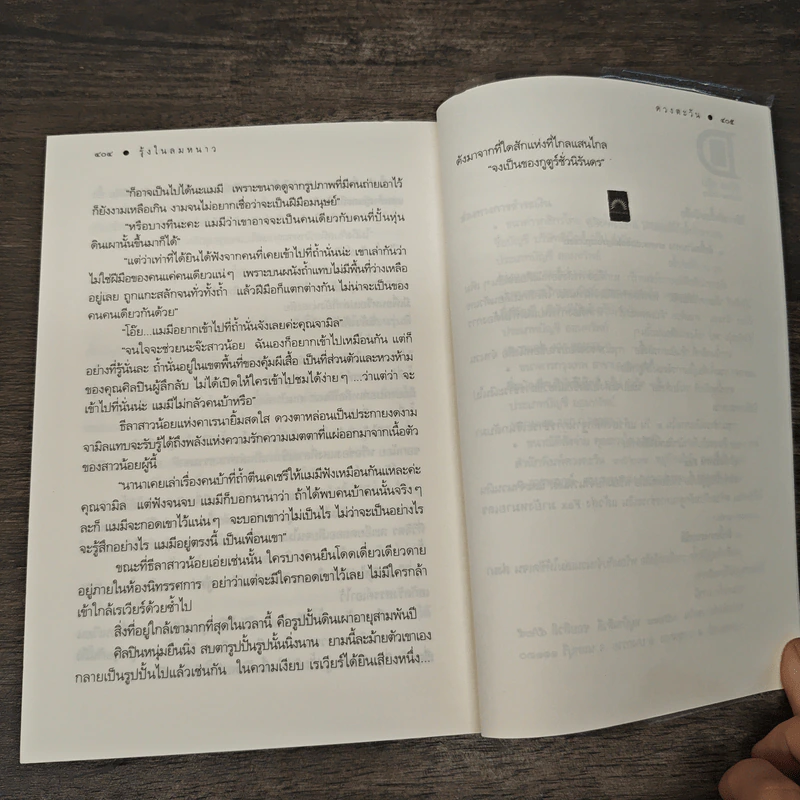 ๔๐๔ ● รุ้งในลมหนาว
"ก็อาจเป็นไปได้นะแมมี่ เพราะขนาดดูจากรูปภาพที่มีคนถ่ายเอาไว้
ก็ยังงามเหลือเกิน งามจนไม่อยากเชื่อว่าจะเป็นฝีมือมนุษย์"
"หรือบางทีนะคะ แมมี่ว่าเขาอาจจะเป็นคนเดียวกับคนที่ปั้นหุ่น
ดินเผานั้นขึ้นมาก็ได้"
"แต่ว่าเท่าที่ได้ยินได้ฟังจากคนที่เคยเข้าไปที่ถ้ำนั่นน่ะ เขาเล่ากันว่า
ไม่ใช่ฝีมือของคนแค่คนเดียวแน่ๆ เพราะบนผนังถ้ำแทบไม่มีพื้นที่ว่างเหลือ
อยู่เลย ถูกแกะสลักจนทั่วทั้งถ้ำ แล้วฝีมือก็แตกต่างกัน ไม่น่าจะเป็นของ
คนคนเดียวกันด้วย"
"โอ๊ย...แมมี่อยากเข้าไปที่ถ้ำนั่นจังเลยค่ะคุณจามิล"
"จนใจจะช่วยนะจ๊ะสาวน้อย ฉันเองก็อยากเข้าไปเหมือนกัน แต่ก็
อย่างที่รู้นั่นละ ถ้ำนั่นอยู่ในเขตพื้นที่ของคุ้มผีเสื้อ เป็นที่ส่วนตัวและหวงห้าม
ของคุณศิลปินผู้ลึกลับ ไม่ได้เปิดให้ใครเข้าไปชมได้ง่ายๆ ...ว่าแต่ว่า จะ
เข้าไปที่นั่นน่ะ แมมี่ไม่กลัวคนบ้าหรือ"
ธีลาสาวน้อยแห่งคาเรนายิ้มสดใส ดวงตาหล่อนเป็นประกายงดงาม
จามิลแทบจะรับรู้ได้ถึงพลังแห่งความรักความเมตตาที่แผ่ออกมาจากเนื้อตัว
ของสาวน้อยผู้นี้
"นานาเคยเล่าเรื่องคนบ้าที่ถ้ำตีนเคเชรีให้แมมี่ฟังเหมือนกันแหละค่ะ
คุณจามิล แต่ฟังจนจบ แมมี่ก็บอกนานาว่า ถ้าได้พบคนบ้าคนนั้นจริงๆ
ละก็ แมมี่จะกอดเขาไว้แน่นๆ จะบอกเขาว่าไม่เป็นไร ไม่ว่าจะเป็นอย่างไร
จะรู้สึกอย่างไร แมมี่อยู่ตรงนี้ เป็นเพื่อนเขา"
ขณะที่ธีลาสาวน้อยเอ่ยเช่นนั้น ใครบางคนยืนโดดเดี่ยวเดียวดาย
อยู่ภายในห้องนิทรรศการ อย่าว่าแต่จะมีใครกอดเขาไว้เลย ไม่มีใครกล้า
เข้าใกล้เรเวียร์ด้วยซ้ำไป
สิ่งที่อยู่ใกล้เขามากที่สุดในเวลานี้ คือรูปปั้นดินเผาอายุสามพันปี
ศิลปินหนุ่มยืนนิ่ง สบตารูปปั้นรูปนั้นนิ่งนาน ยามนี้ละม้ายตัวเขาเอง
กลายเป็นรูปปั้นไปแล้วเช่นกัน ในความเงียบ เรเวียร์ได้ยินเสียงหนึ่ง...
ดวงตะวัน ● ๔๐๕
ดังมาจากที่ใดสักแห่งที่ไกลแสนไกล
"จงเป็นของกูตูร์ชั่วนิรันดร"